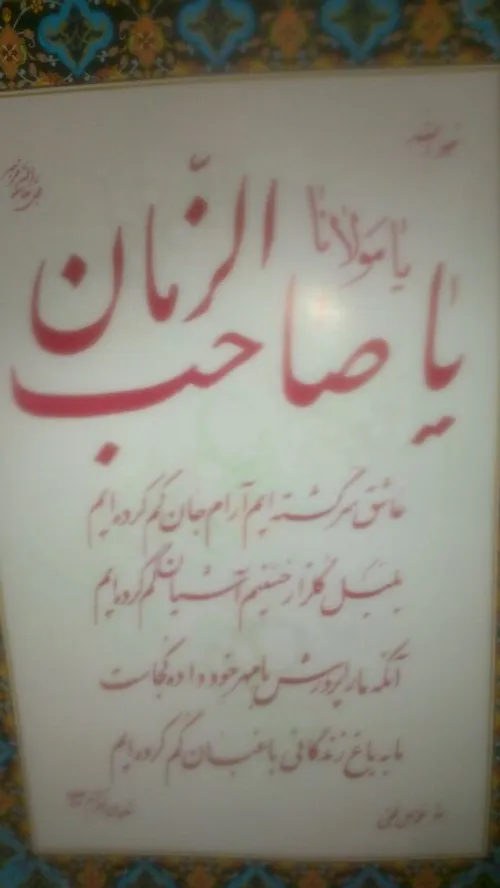 هو الله
یا مولانا
یا صاحب الزمان
عاشق سرگشته ایم آرام جان گم کرده ایم
بلبل گلزار حسنیم آشیان گم کرده ایم
آنکه ما را پرورش با مهر خود داده کجاست
ما به باغ زندگانی باغبان گم کرده ایم